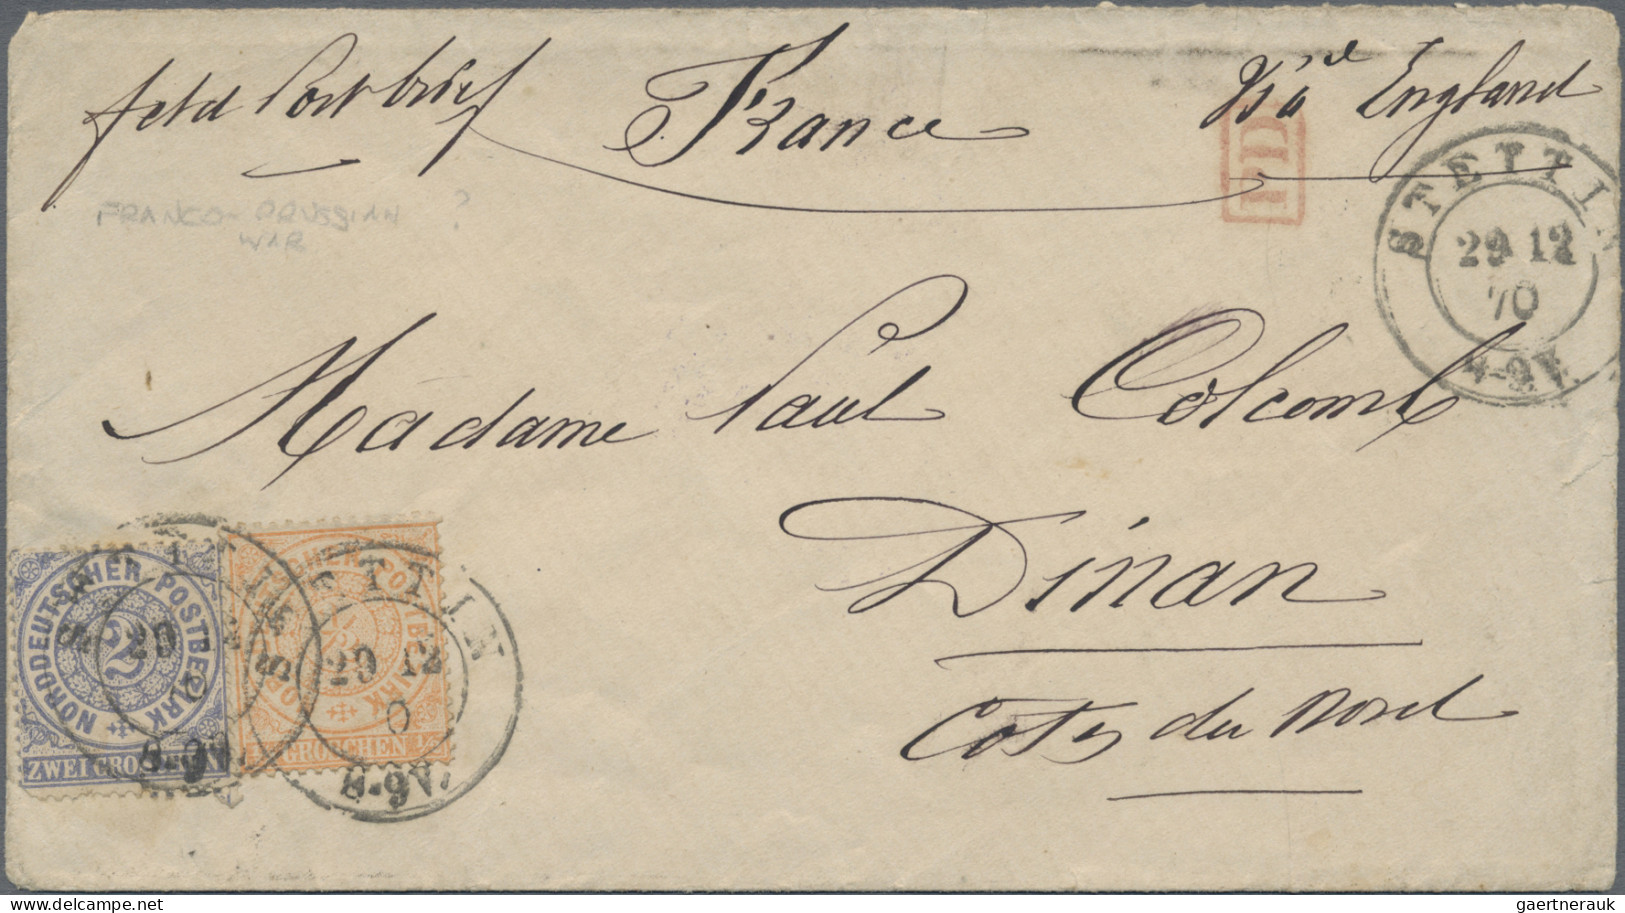 feld Postbrief France Via England
PD
FRANCO-PRUSSIAN ?
WAR
STETTIN
29 12
70
8-9 V.
Madame Paul Colcomb
Dinan
Cotes du Nord
NORDDEUTSCHER POSTBEZIRK
2
ZWEI GROSCHEN
STETTIN
29 12
70
8-9 V.
NORDDEUTSCHER POSTBEZIRK
1/2
GROSCHEN 1/2
STETTIN
29 12
0
8-9 V.
gaertnerauk